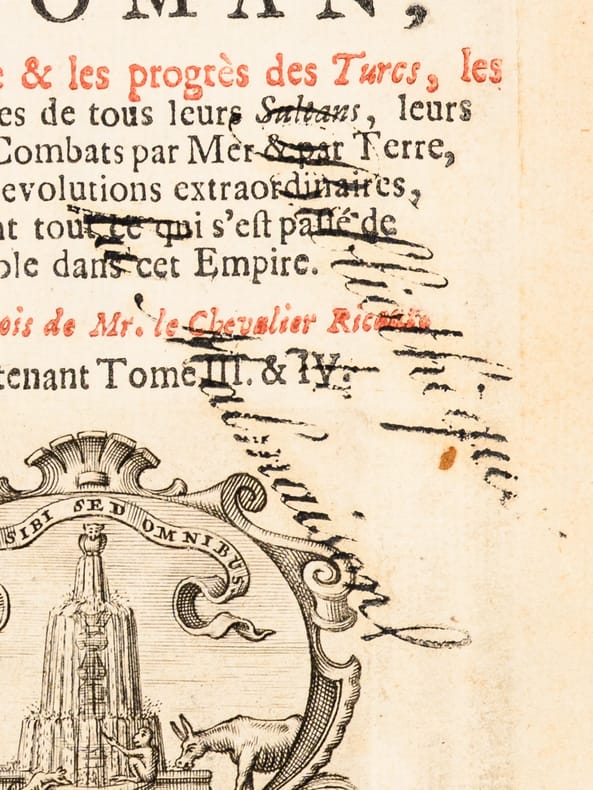 OMAN,
& les progrès des Turcs, les
es de tous leurs Sultans, leurs
Combats par Mer & par Terre,
evolutions extraordinaires,
nt tout ce qui s'est passé de
ble dans cet Empire.
ois de Mr. le Chevalier Ricaut
tenant Tome III. & IV.
SIBI SED OMNIBUS